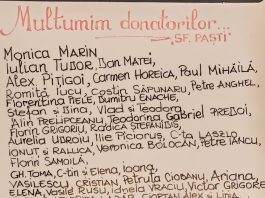 Multumim donatorilor...
"SF. PAȘTI"
Monica MARIN
Iulian TUDOR, Dan MATEI,
Alex PIȚIGOI, Carmen HOREICA, Paul MIHĂILĂ,
Romița IUCU, Costin SĂPUNARU, Petre ANGHEL,
Florentina PELE, Dumitru ENACHE,
Ștefan și Irina, Vlad și Teodora,
Alin PRELIPCEANU, Teodorina, Gabriel PREBOI,
Florin GRIGORIU, Radica ȘTEFĂNIDIS,
Aurelia UBROIU, Ilie PICIORUS, C-ta LASZLO
IONUȚ și RALUCA, VERONICA BOLOCAN, PETRE IANCU,
Florin SAMOILĂ,
GH. TOMA, C-tin și Elena, Ioana,
VASILESCU CRISTIAN, PETRULA CIOBANU, ARIANA,
ELENA, VASILE RUSU, VIRARU, VICTOR GRIGORE